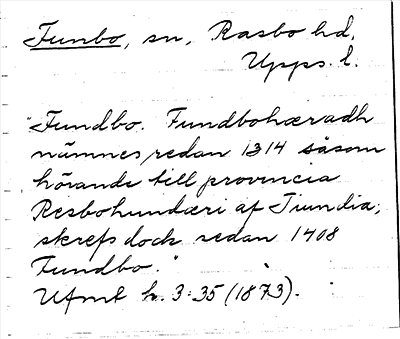 Funbo, sn, Rasbo hd,
Upps. l.
"Fundbo. Fundbohæradh
nämnes redan 1314 såsom
hörande till provincia
Resbohundæri af Tiundia;
skrefs dock redan 1408
Fundbo."
Ufmt h. 3:35 (1873).